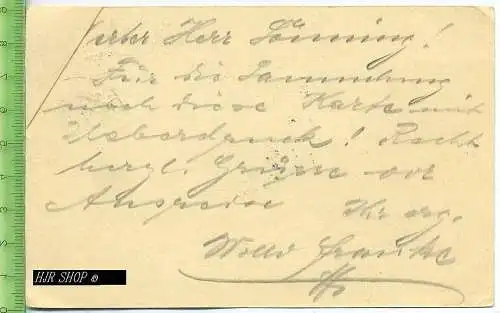 Werter Herr Lönning!
Für die Sammlung
noch diese Karte mit
Ueberdruck! Recht
herzl. Grüsse vor
Ausreise Ihr erg.
Willi Franke
HJR SHOP ©